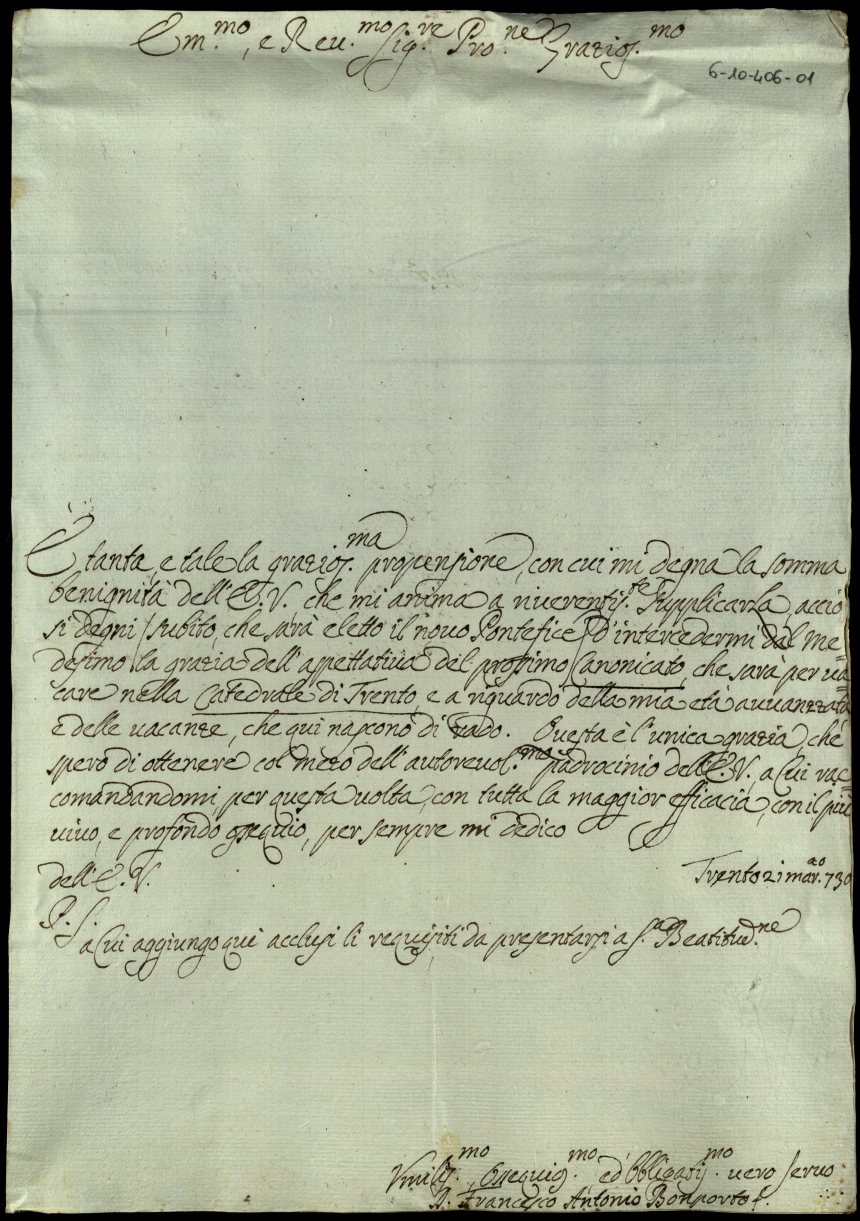 Em.mo, e Reu.mo Sig.re Pro.ne Grazios.mo
6-10-406-01
È tanta, e tale la grazios.ma propensione, con cui mi degna la somma
benignità dell'E.V. che mi anima a riuerentis.te supplicarla, acciò
si degni /subito, che sarà eletto il nouo Pontefice/ d'intercedermi dal me=
desimo la grazia dell'aspettatiua del prossimo Canonicato, che sarà per ua=
care nella Catedrale di Trento, e a riguardo della mia età auuanzata
e delle uacanze, che qui nascono di rado. Questa è l'unica grazia, che
spero di ottenere col mezo dell'autoreuol.mo padrocinio dell'E.V., a Cui rac=
comandandomi per questa uolta, con tutta la maggior efficacia, con il più
uiuo, e profondo ossequio, per sempre mi dedico
dell'E.V.
Trento 21 mar.zo 730
P.S.
a Cui aggiungo qui acclusi li requisiti da presentarsi a S.a Beatitud.ne
Vmilis.mo Ossequios.mo ed Obbligatis.mo uero seruo
Francesco Antonio Bonporto